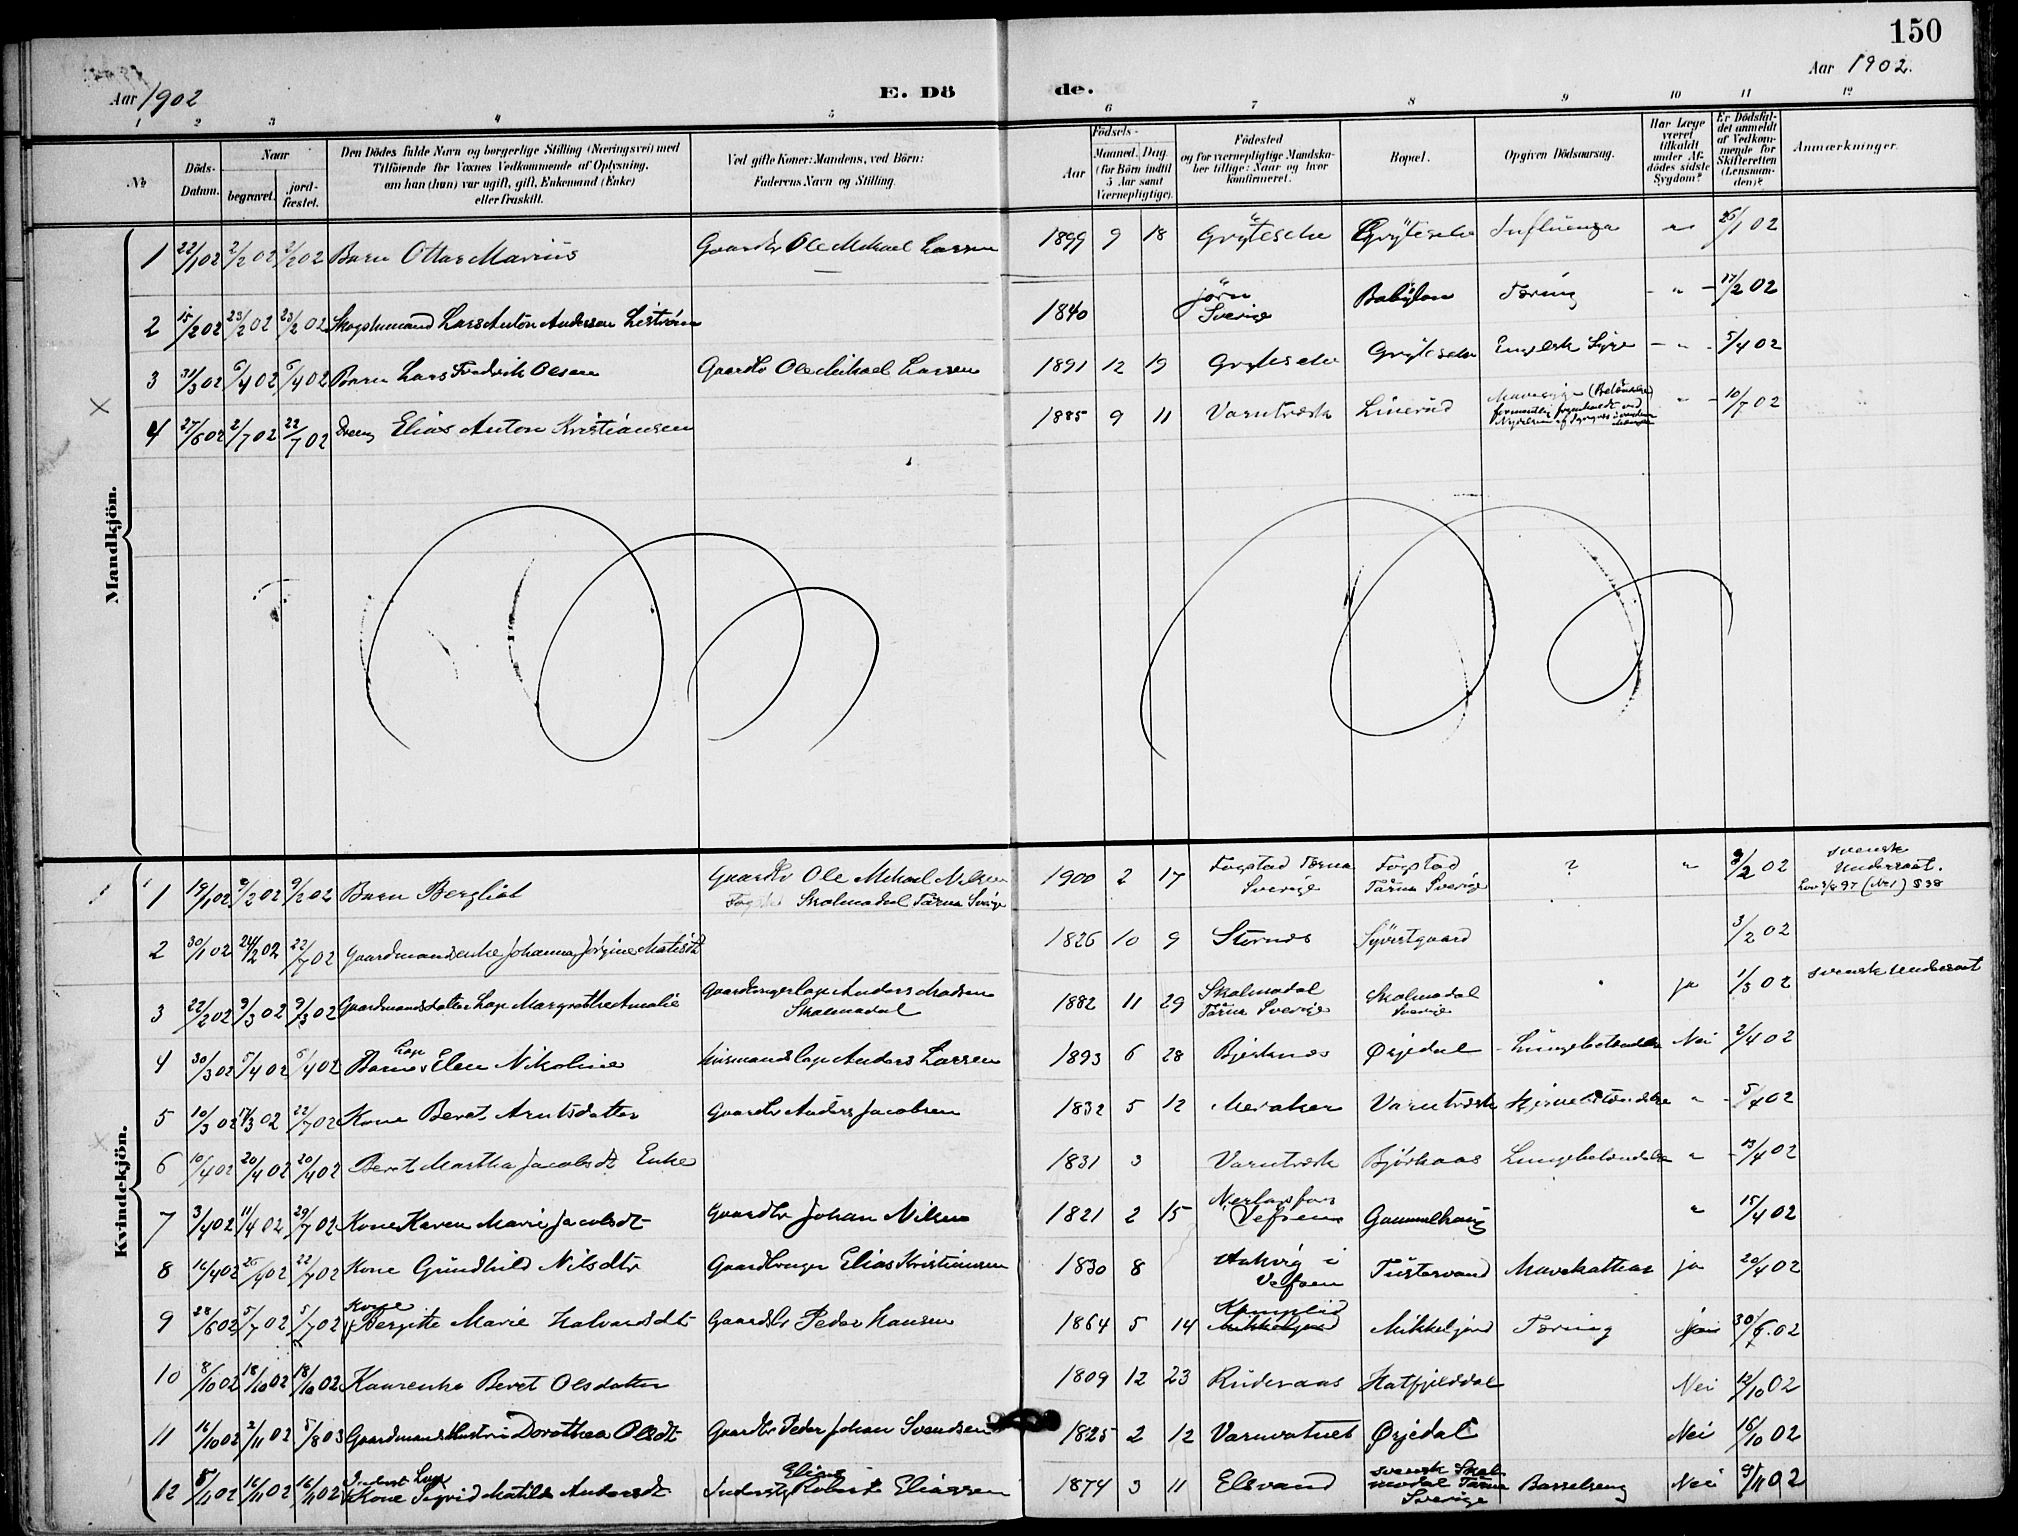 150
Aar 1902 E. Dö de. Aar 1902.
1 2 3 4 5 6 7 8 9 10 11 12
No
Döds-Datum.
Naar
begravet.
jord-fæstet.
Den Dödes fulde Navn og borgerlige Stilling (Næringsvei) med
Tilföiende for Voxnes Vedkommende af Oplysning,
om han (hun) var ugift, gift, Enkemand (Enke)
eller fraskilt.
Ved gifte Koner: Mandens, ved Börn:
Faderens Navn og Stilling.
Födsels-
Aar
Maaned. Dag.
(for Börn indtil
5 Aar samt
Værnepligtige).
Födested
og for værnepligtige Mandska-
ber tillige: Naar og hvor
konfirmeret.
Bopæl.
Opgiven Dödsaarsag.
Har Læge
været
tilkaldt
under Af-
dödes sidste
Sygdom?
Er Dödsfal-
det anmeldt
af Vedkom-
mende for
Skifteretten
(Lensman-
den)?
Anmærkninger.
Mandkjön.
1 22/1 02 2/2 02 2/2 02 Barn Ottar Marius Gaardbr Ole Mikael Larsen 1899 9 18 Grytesele Grytesele Influenza " 26/1 02
2 15/2 02 23/2 02 23/2 02 Lars Anton Andersen 1840 Jörn Sverige Babylon Tæring " 17/2 02
3 31/3 02 6/4 02 6/4 02 Barn Lars Fredrik Olsen Gaardbr Ole Mikael Larsen 1891 12 19 Grytesele Grytesele Engelsk Syge " 5/4 02
4 27/6 02 2/7 02 22/7 02 Dreng Elias Anton Kristiansen 1885 9 11 Varntræsk Linerud " 10/7 02
Kvindekjön.
1 19/1 02 9/2 02 9/2 02 Barn Bergliot Gaardbr Ole Mikael Nilsen
Skalmodal Tärna Sverige 1900 2 17 Fogstad Tærna Sverige Fogstad Tärna Sverige ? " 3/2 02 svensk Undersaat.
2 30/1 02 24/2 02 22/7 02 Gaardmandsenke Johanna Jörgine 1826 10 9 Stornæs Syvertgaard 3/2 02
3 22/2 02 9/3 02 9/3 02 Gaardmandsdatter Lap Margrethe Amalie Gaardbruger Lap Anders Madsen
Skalmodal 1882 11 29 Skalmodal Tärna Sverige Skalmodal Sverige ja 1/3 02 svensk Undersaat
4 30/3 02 5/4 02 5/4 02 Lap Barn Elen Nikoline Husmand Lap Anders Larsen 1893 6 28 Bjerknæs Örjedal Lungebetændelse Nei 2/4 02
5 10/3 02 17/3 02 22/7 02 Kone Beret Arntsdatter Gaardbr Anders Jacobsen 1832 5 12 Meraker Varntræsk Hjernebetændelse " 5/4 02
6 10/4 02 20/4 02 20/4 02 Beret Martha Jacobsdt Enke 1831 3 Varntræsk Björkaas Lungebetændelse " 13/4 02
7 3/4 02 11/4 02 29/7 02 Kone Karen Marie Jacobsdt Gaardbr Johan Nilsen 1821 2 15 Vefsen Gammelhaug " 15/4 02
8 16/4 02 26/4 02 22/7 02 Kone Gundhild Nilsdtr Gaardbruger Elias Kristiansen 1830 8 i Vefsen Tustervand Mavekathar ja 20/4 02
9 28/6 02 5/7 02 5/7 02 Kone Bergitte Marie Halvardsdt Gaardbr Peder Hansen 1864 5 14 Kamplid Mikkeljord Mikkeljord Tæring 30/6 02
10 8/10 02 18/10 02 18/10 02 Beret Olsdatter 1809 12 23 Hatfjelddal Nei 12/10 02
11 16/10 02 2/11 02 5/8 03 Gaardmands Hustru Dorothea Olsdt Gaardbr Peder Johan Svendsen 1825 2 12 Varnvatnet Örjedal Nei 16/10 02
12 5/11 02 16/11 02 16/11 02 Inderst Lap Kone Sigrid Matilde Andersdt Inderst Elias Robert Eliassen 1874 3 11 Elsvand svensk Skalmodal Tärna Sverige Barselseng Nei 9/11 02